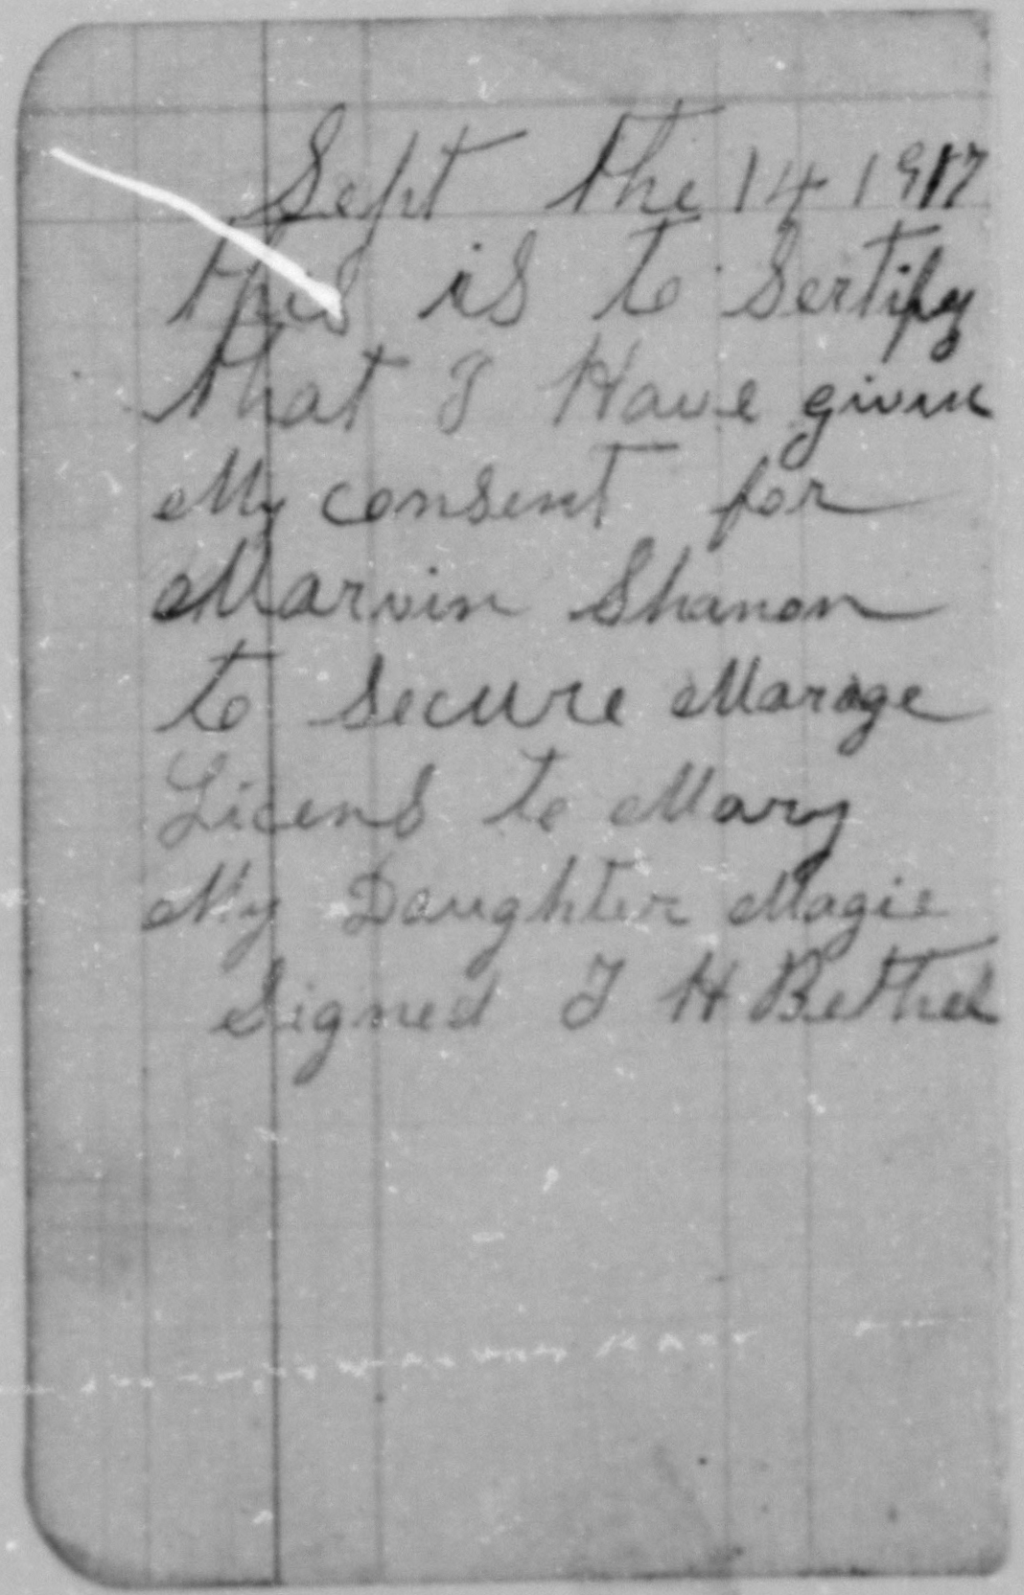 Sept the 14 1917
this is to Sertify
that I Have given
My consent for
Marvin Shanon
to secure Marage
Licens to Mary
My Daughter Magie
Signed J H Bethel